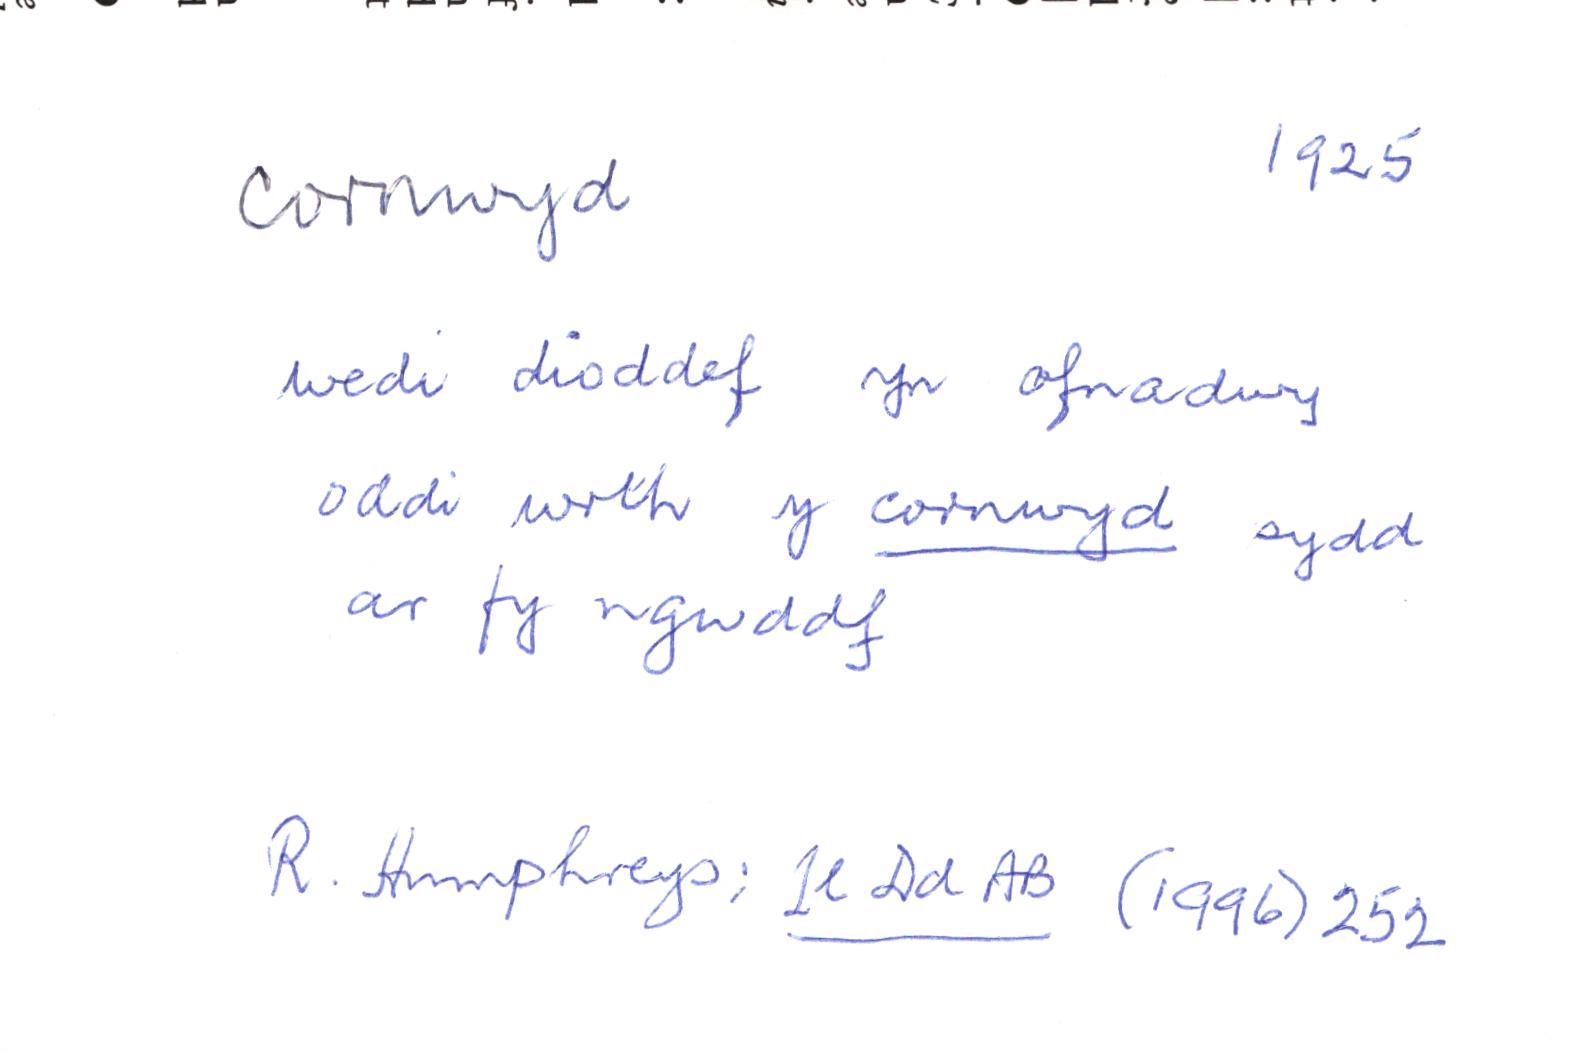 Cornwyd 1925
wedi dioddef yn ofnadwy
oddi wrth y cornwyd sydd
ar fy ngwddf
R. Humphreys; Ll Dd AB (1996) 252